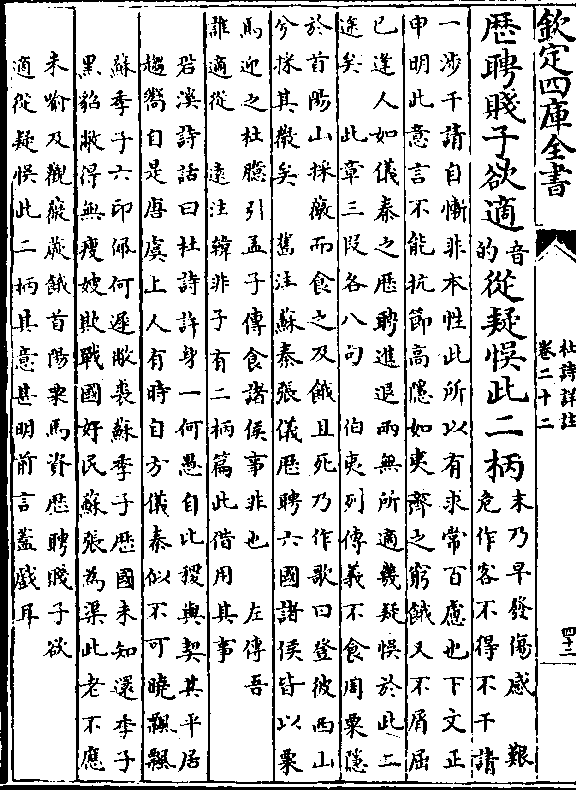 欽定四庫全書
杜詩詳註
卷二十二
歴聘賤子欲適音的從疑悞此二柄
末乃早發傷感 艱
危作客不得不干請
一涉干請自慚非本性此所以有求常百慮也下文正
申明此意言不能抗節高隱如夷齊之窮餓又不屑屈
已逢人如儀秦之厯聘進退兩無所適幾疑悞於此二
途矣 此章三段各八句 伯夷列傳義不食周粟隱
於首陽山採薇而食之及餓且死乃作歌曰登彼西山
兮採其薇矣 舊注蘇秦張儀厯聘六國諸侯皆以粟
馬迎之杜臆引孟子傳食諸侯事非也 左傳吾
誰適從 遠注韓非子有二柄篇此借用其事
䂬溪詩話曰杜詩許身一何愚自比稷與契其平居
趨嚮自是唐虞上人有時自方儀秦似不可曉飄飄
蘇季子六印佩何遲敝裘蘇季子歴國未知還季子
黑貂敝得無瘦嫂欺戰國奸民蘇張為渠此老不應
未喻及觀薇蕨餓首陽粟馬資歴聘賤子欲
適從疑悞此二柄其意甚明前言蓋戲耳